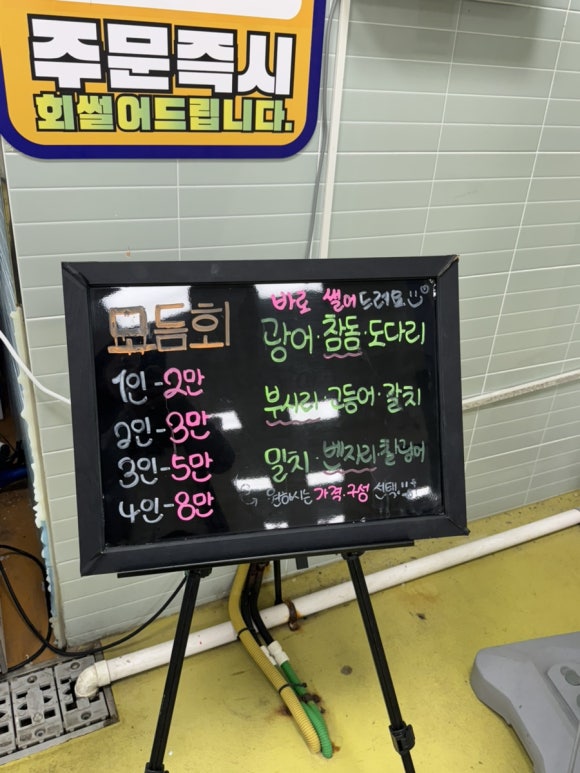 주문즉시
회썰어드립니다.
모듬회
1인-2만
2인-3만
3인-5만
4인-8만
바로 썰어드려요
광어·참돔·도다리
부시리·고등어·갈치
밀치·벤자리·찰광어
원하시는 가격·구성 선택!!